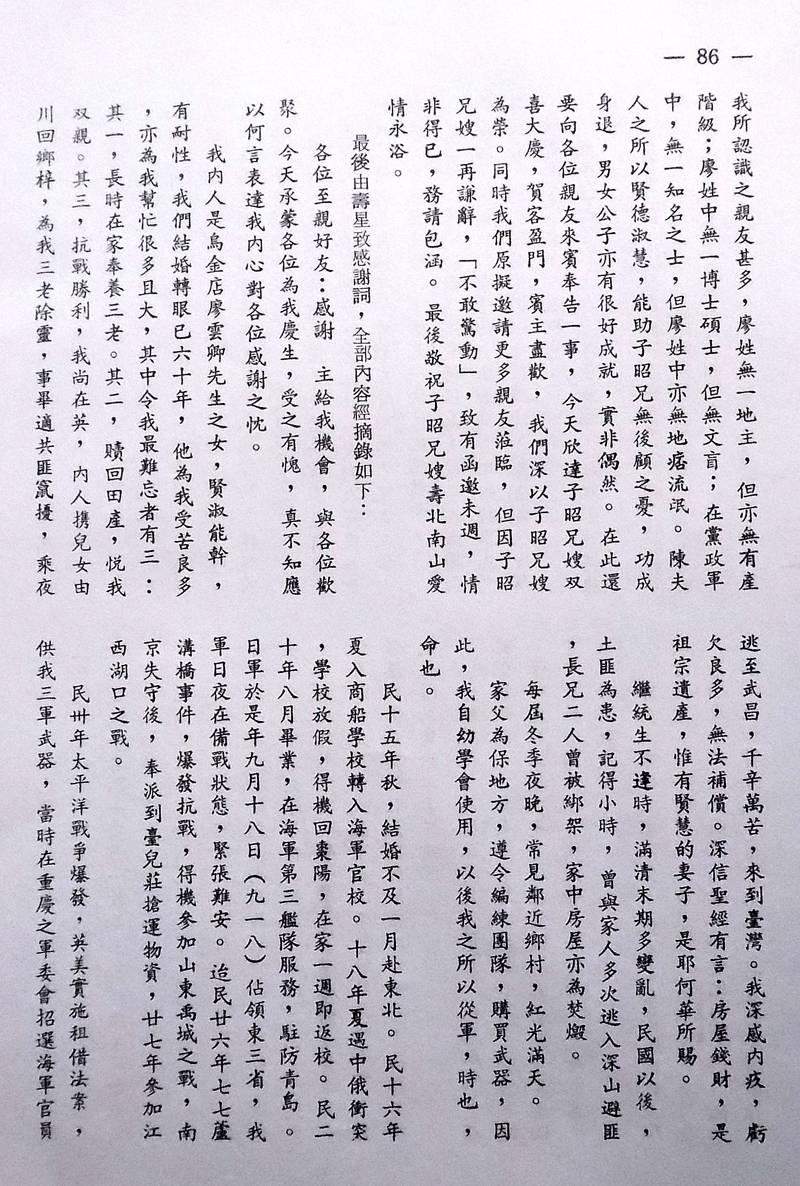 — 86 —
我所認識之親友甚多，廖姓無一地主，但亦無有產
階級；廖姓中無一博士碩士，但無文盲；在黨政軍
中，無一知名之士，但廖姓中亦無地痞流氓。陳夫
人之所以賢德淑慧，能助子昭兄無後顧之憂，功成
身退，男女公子亦有很好成就，實非偶然。在此還
要向各位親友來賓奉告一事，今天欣逢子昭兄嫂双
喜大慶，賀客盈門，賓主盡歡，我們深以子昭兄嫂
為榮。同時我們原擬邀請更多親友蒞臨，但因子昭
兄嫂一再謙辭，「不敢驚動」，致有函邀未週，情
非得已，務請包涵。最後敬祝子昭兄嫂壽北南山愛
情永浴。
最後由壽星致感謝詞，全部內容經摘錄如下：
各位至親好友：感謝　主給我機會，與各位歡
聚。今天承蒙各位為我慶生，受之有愧，真不知應
以何言表達我內心對各位感謝之忱。
我內人是烏金店廖雲卿先生之女，賢淑能幹，
有耐性，我們結婚轉眼已六十年，他為我受苦良多
，亦為我幫忙很多且大，其中令我最難忘者有三：
其一，長時在家奉養三老。其二，贖回田產，悦我
双親。其三，抗戰勝利，我尚在英，內人携兒女由
川回鄉梓，為我三老除靈，事畢適共匪竄擾，乘夜
逃至武昌，千辛萬苦，來到臺灣。我深感內疚，虧
欠良多，無法補償。深信聖經有言：房屋錢財，是
祖宗遺產，惟有賢慧的妻子，是耶何華所賜。
繼統生不逢時，滿清末期多變亂，民國以後，
土匪為患，記得小時，曾與家人多次逃入深山避匪
，長兄二人曾被綁架，家中房屋亦為焚燬。
每屆冬季夜晚，常見鄰近鄉村，紅光滿天。
家父為保地方，遵令編練團隊，購買武器，因
此，我自幼學會使用，以後我之所以從軍，時也，
命也。
民十五年秋，結婚不及一月赴東北。民十六年
夏入商船學校轉入海軍官校。十八年夏遇中俄衝突
，學校放假，得機回棗陽，在家一週即返校。民二
十年八月畢業，在海軍第三艦隊服務，駐防青島。
日軍於是年九月十八日（九一八）佔領東三省，我
軍日夜在備戰狀態，緊張難安。迨民廿六年七七蘆
溝橋事件，爆發抗戰，得機參加山東禹城之戰，南
京失守後，奉派到臺兒莊搶運物資，廿七年參加江
西湖口之戰。
民卅年太平洋戰爭爆發，英美實施租借法案，
供我三軍武器，當時在重慶之軍委會招選海軍官員